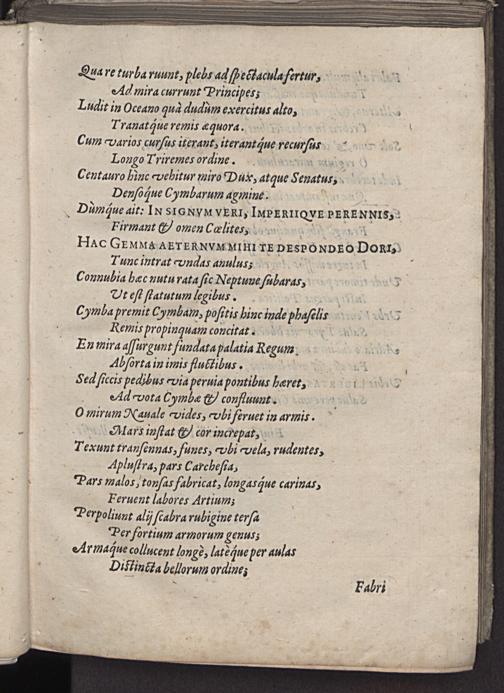 Qua re turba ruunt, plebs ad spectacula fertur,
Ad mira currunt Principes;
Ludit in Oceano quà dudùm exercitus alto,
Tranatq́ue remis æquora.
Cum varios cursus iterant, iterantq́ue recursus
Longo Triremes ordine.
Centauro hìnc vehitur miro Dux, atque Senatus,
Densoq́ue Cymbarum agmine.
Dùmq́ue ait: IN SIGNVM VERI, IMPERIIQVE PERENNIS,
Firmant & omen Cœlites,
HAC GEMMA AETERNVM MIHI TE DESPONDEO DORI,
Tunc intrat vndas anulus;
Connubia hæc nutu rata sic Neptune subaras,
Vt est statutum legibus.
Cymba premit Cymbam, positis hinc inde phaselis
Remis propinquam concitat.
En mira assurgunt fundata palatia Regum
Absorta in imis fluctibus.
Sed siccis pedibus via peruia pontibus hæret,
Ad vota Cymbæ & confluunt.
O mirum Nauale vides, vbi feruet in armis.
Mars instat & cor increpat,
Texunt transennas, funes, vbi vela, rudentes,
Aplustra, pars Carchesia,
Pars malos, tonsas fabricat, longasq́ue carinas,
Feruent labores Artium;
Perpoliunt alij scabra rubigine tersa
Per fortium armorum genus;
Armaq́ue collucent longè, latèq́ue per aulas
Distincta bellorum ordine;
Fabri